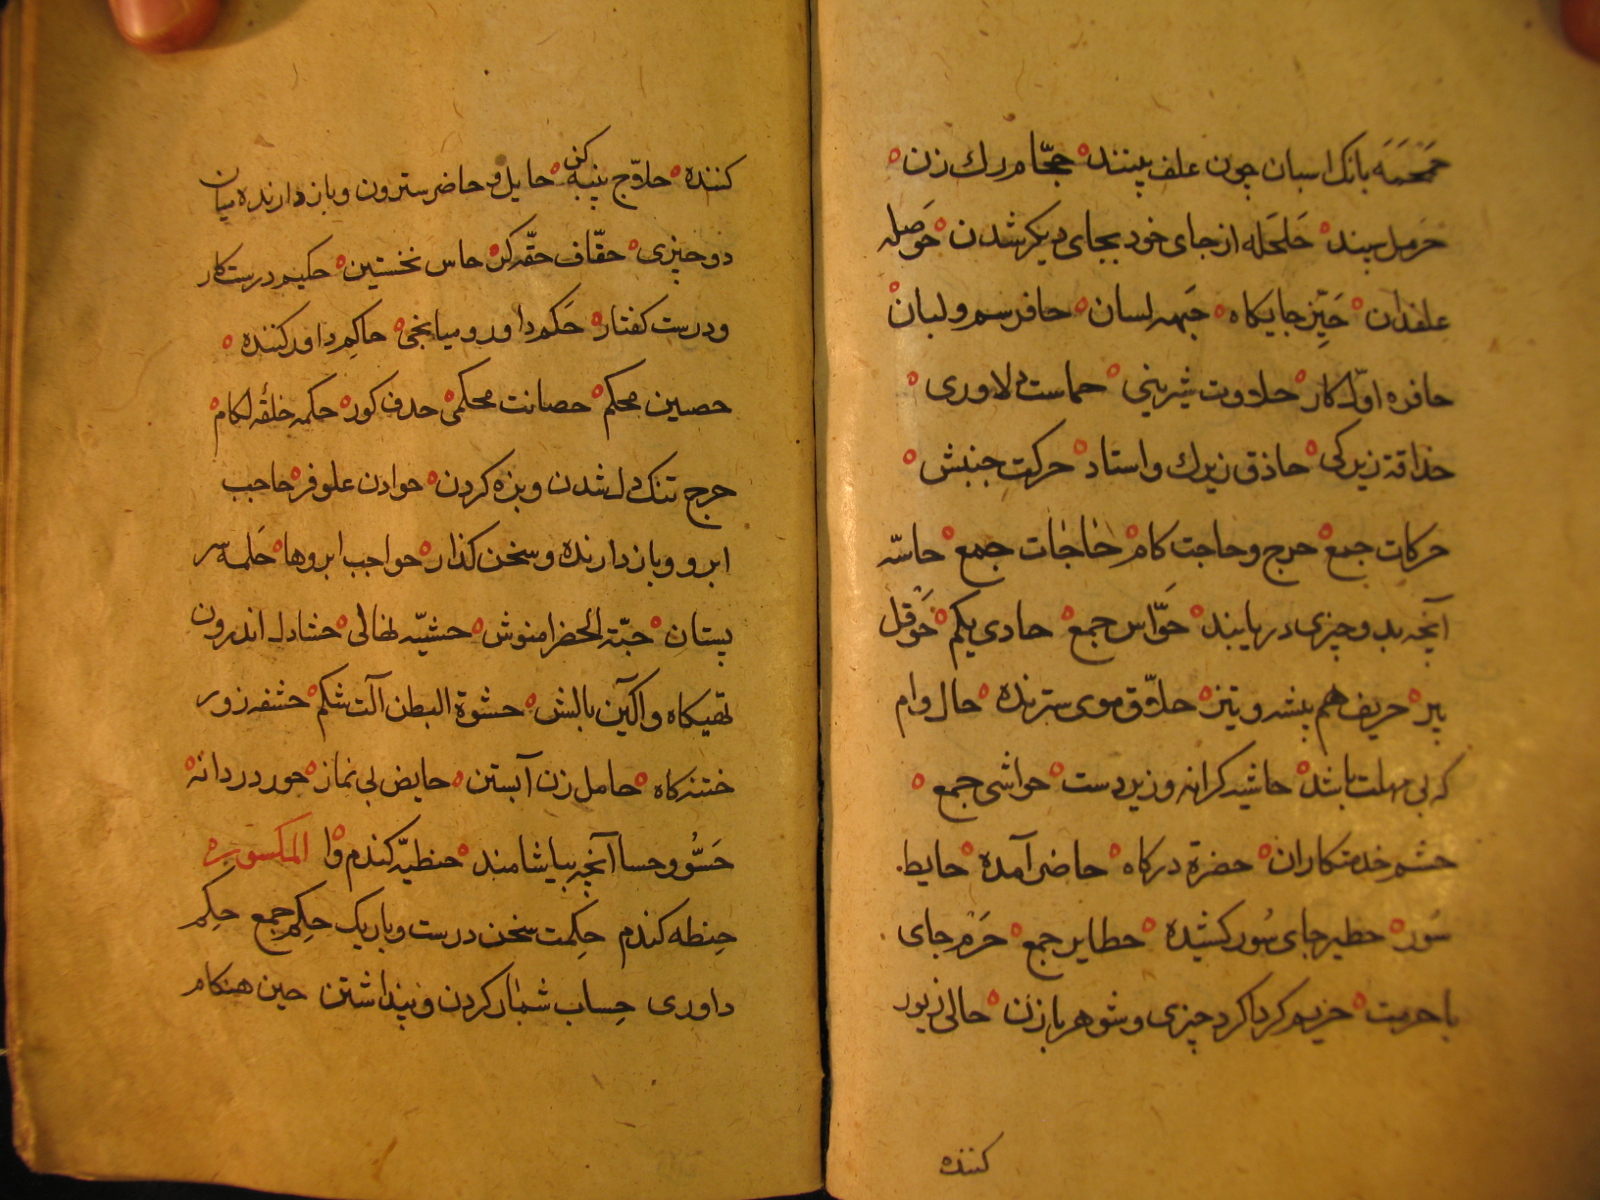 حمحمه بانک اسبان چون علف بینند حجّام رک زن
حرمل سپند حَلحَله از جای خود بجای دیکر شدن حَوصله
علفدان حَیِّز جایکاه جَبهه لسان حافر سم ولبان
حافره اوّل کار حلاوت شیرینی حماست دلاوری
حذاقة زیرکی حاذق زیرك واستاد حرکت جنبش
حرکات جمع حرج وحاجت کام حاجات جمع حاسّه
آنچه بدو چیزی دریابند حَوّاس جمع حادی یکم حَوقل
پیر حریف هم پیشه وتیز حلاّق موی سترنده حال وام
که بی مهلت باشد حاشیه کرانه وزیردست حواشی جمع
حشم خدمتکاران حضرة درکاه حاضر آمده حایط
سُور حظیر جای سُور کشیده حطایر جمع حَرَم جای
با حرمت حریم کرداکرد چیزی وشوهر بازن حالی زیور
کننده
کننده حلاّج پنبه کن حایل و حاضر سترون وبازدارنده میان
دو چیزی حقّاف حقّه کر حاس نخستین حکیم درست کار
ودرست کفتار حَکَم داور ومیانجی حاکِم داور کننده
حصین محکم حصانت محکمی حدف کور حکمه حلقهٔ لکام
حرج تنک دل شدن وبزه کردن حوادن علوفر حاجب
ابرو وبازدارنده وسخن کذار حواجب ابروها حَلمه سر
پستان حبّة الخضرا منوش حشیّه نهالی حشادل اندرون
تهیکاه واکین بالش حشوة البطن آلت شکم حشفه زور
ختنه کاه حامل زن آبستن حایض بی نماز حور دردانه
حَسُّو وحسا آنچه بیاشامند حنطیّه کندم وا المکسوره
حِنطه کندم حِکمت سخن درست وباریک حِکم جمع حِکم
داوری حِساب شمار کردن وپنداشتن حین هنکام